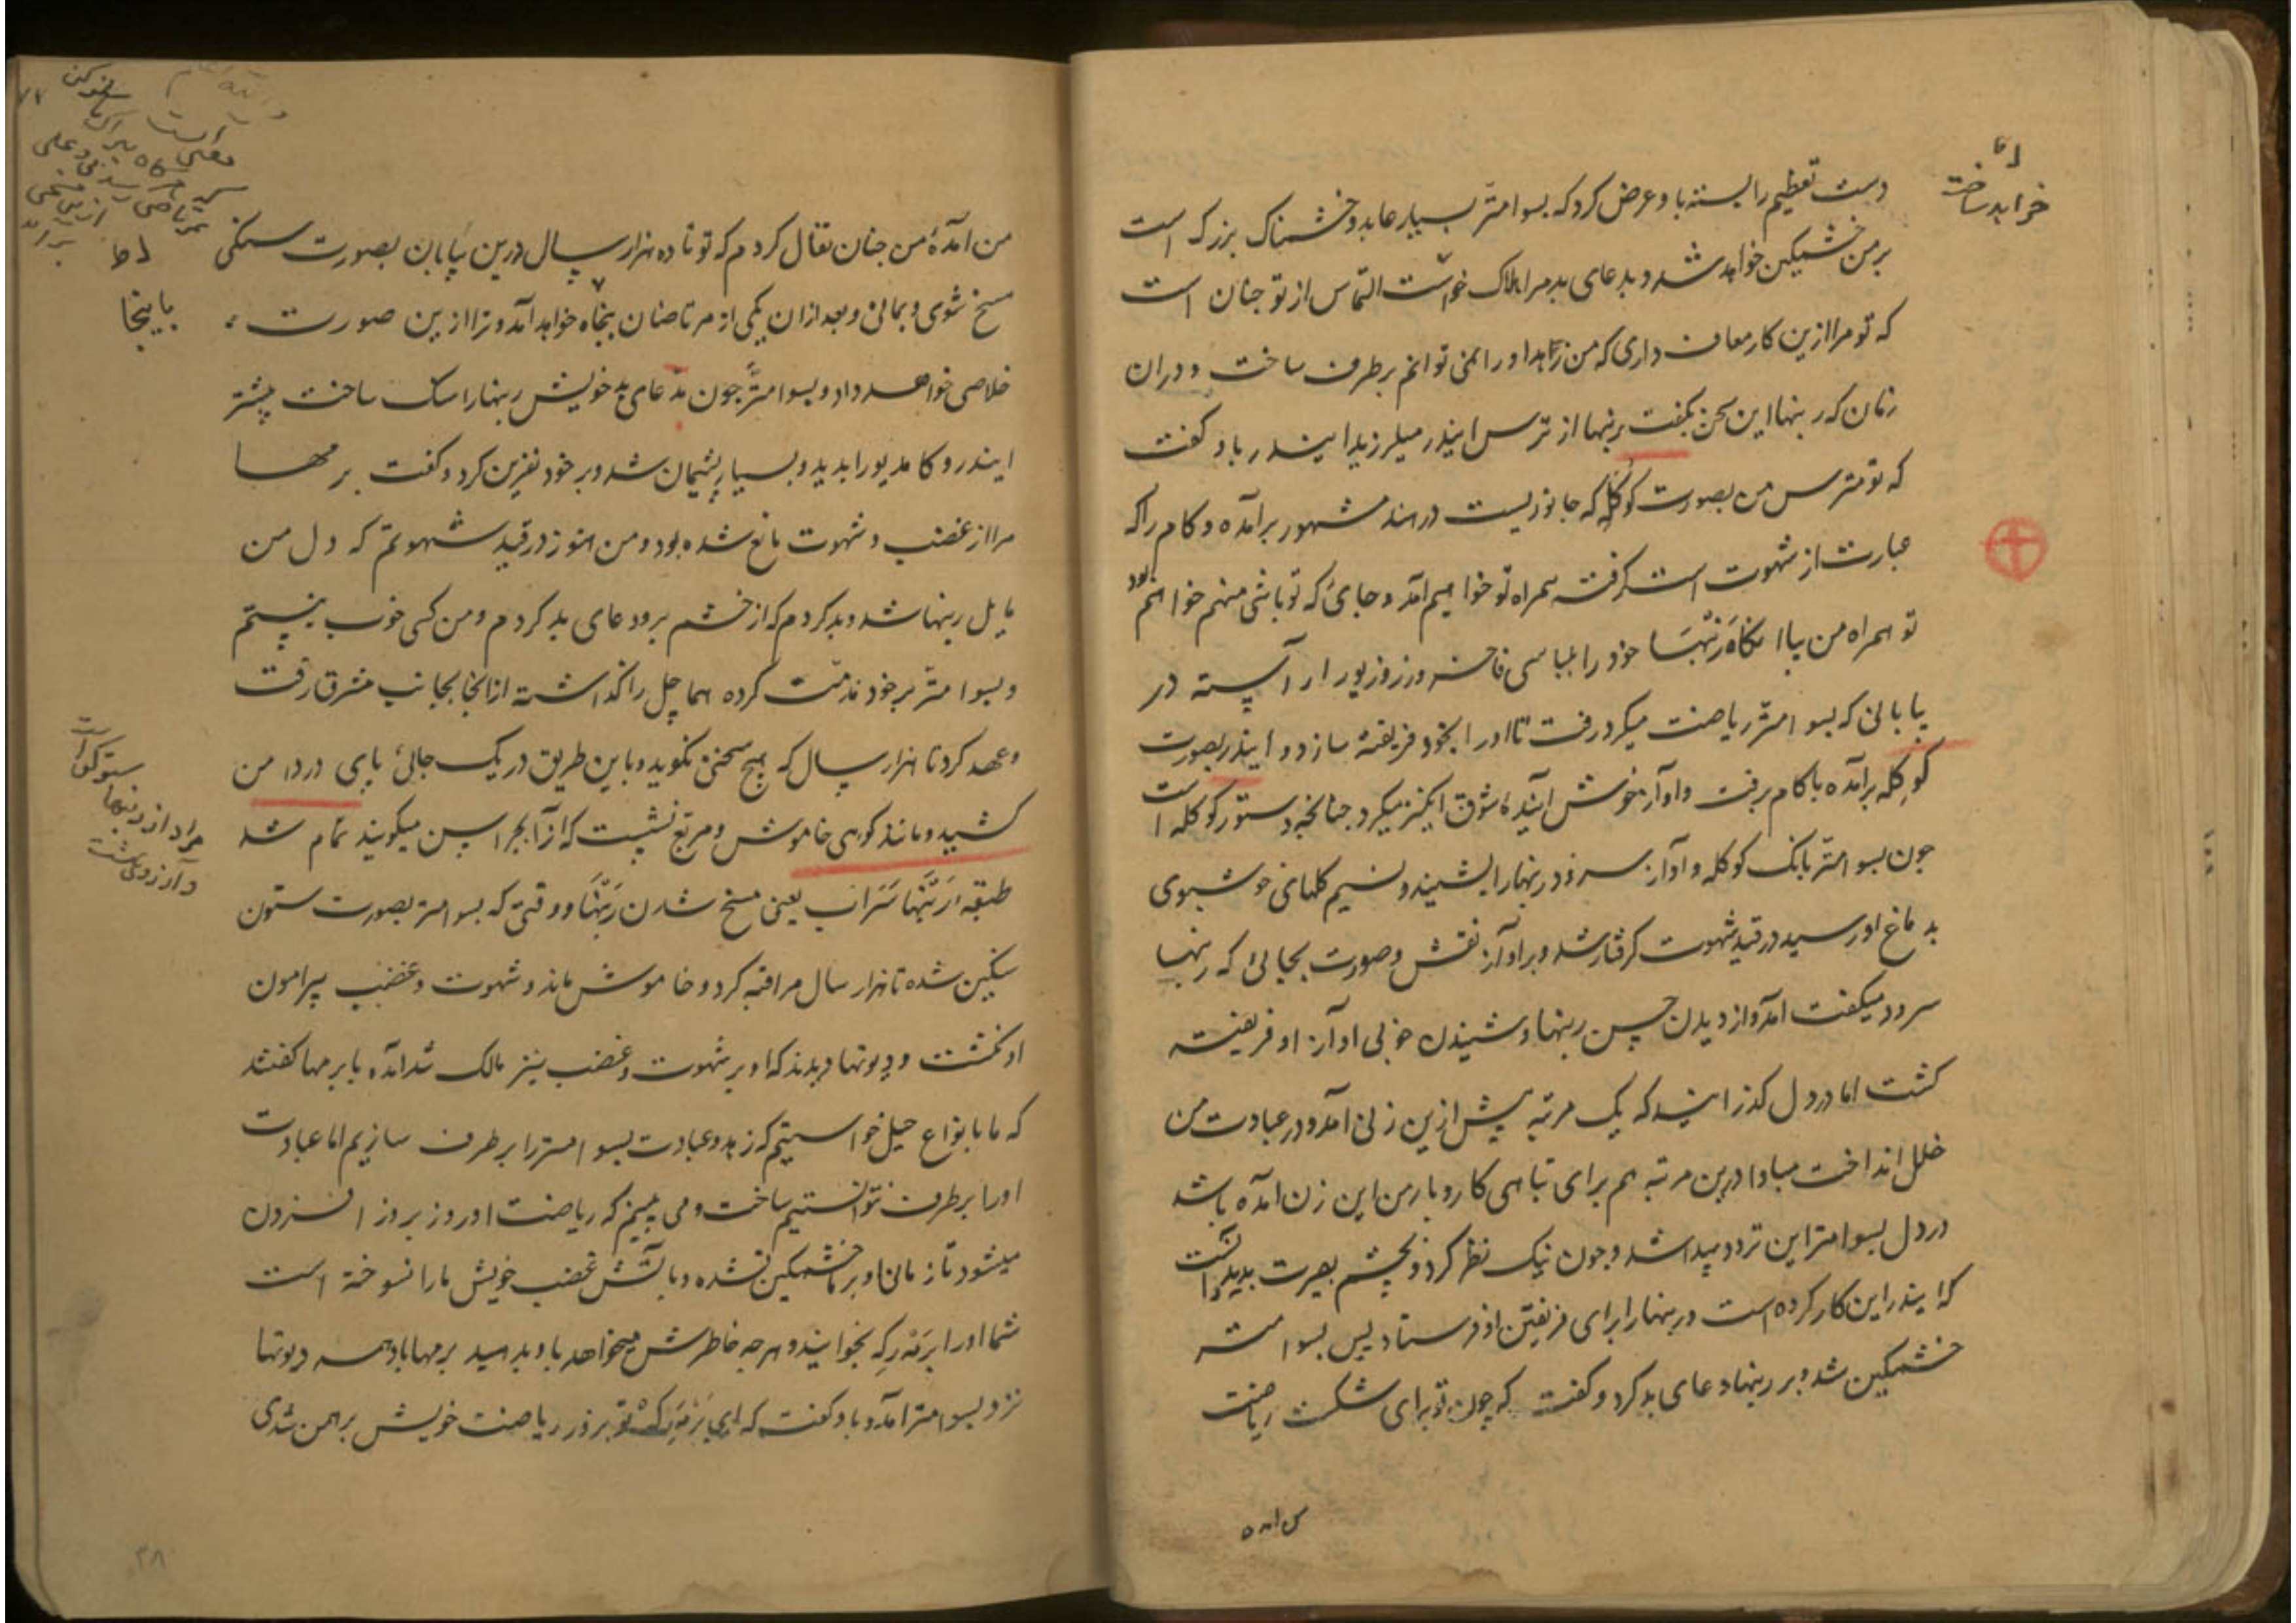 دست تعظیم را بسته باو عرض کرد که بسوامتر بسیار عابد و خشمناک بزرک است
بر من خشمکین خواهد شد و بدعای بد مرا هلاک خواست التماس از تو جنان است
که تو مرا ازین کار معاف داری که من زهد او را نمی توانم برطرف ساخت و دران
زمان که رنبها این سخن بکفت رنبها از ترس ایندر میلرزید ایندر باو کفت
که تو مترس من بصورت کوکله که جانوریست در هند مشهور برآمده و کام را که
عبارت از شهوت است کرفته همراه تو خواهیم آمد و جائ که تو باشی منهم خواهم بود
تو همراه من بیا انکاه رنبها خود را بلباسی فاخر و زر و زیور آراسته در
بیابانی که بسوامتر ریاضت میکرد رفت تا او را بخود فریفته سازد و ایندر بصورت
کوکله برآمده با کام برفت و آواز خوش آینده شوق انکیز میکرد جنانجه دستور کوکله است
جون بسوامتر بانک کوکله و آواز سرود رنبها را بشنید و نسیم کلهای خوشبوی
بدماغ او رسید در قید شهوت کرفتار شد و بر آواز نقش و صورت بجائی که رنبها
سرود میکفت آمد و از دیدن حسن رنبها و شنیدن خوبی آواز او فریفته
کشت اما در دل کذرانید که یک مرتبه پیش ازین زنی آمد و در عبادت من
خلل انداخت مبادا درین مرتبه هم برای تباهی کار و بار من این زن آمده باشد
در دل بسوامتر این تردد پیدا شد و جون نیک نظر کرد و بچشم بصیرت بدید دانست
که ایندر این کار کرده است و رنبها را برای فریفتن او فرستاد پس بسوامتر
خشمکین شد و بر رنبها دعای بد کرد و کفت که چون تو برای شکست ریاضت
خواهد ساخت
من آمدهٔ من جنان تقال کردم که تو تا ده هزار سال درین بیابان بصورت سنکی
مسخ شوی و بمانی و بعد ازان یکی از مرتاضان بنجاه خواهد آمد و ترا ازین صورت
خلاصی خواهد داد و بسوامتر جون بدعای بد خویش رنبها را سنک ساخت پیشتر
ایندر و کامدیو را بدید و بسیار پشیمان شد و بر خود نفرین کرد و کفت برمها
مرا از غضب و شهوت مانع شده بود و من هنوز در قید شهوتم که دل من
مایل رنبها شد و بد کردم که از خشم برو دعای بد کردم و من کسی خوب نیستم
و بسوامتر بر خود مذمت کرده هماچل را کذاشته از انجا بجانب مشرق رفت
و عهد کرد تا هزار سال که هیج سخن نکوید و باین طریق در یک جائی پای در دامن
کشید و مانند کوهی خاموش و مربع نشست که آنرا بجراسن میکویند تمام شد
طبقه رنبها سراب یعنی مسخ شدن رنبها و وقتی که بسوامتر بصورت ستون
سنکین شده تا هزار سال مراقبه کرد و خاموش ماند و شهوت و غضب پیرامون
او نکشت و دیوتها دیدند که او بر شهوت و غضب نیز مالک شد آمده با برمها کفتند
که ما بانواع حیل خواستیم که زهد و عبادت بسوامتر را برطرف سازیم اما عبادت
او را برطرف نتوانستیم ساخت و می بینم که ریاضت او روز بروز افزون
میشود تا زمانی او بر ما خشمکین نشده و بآتش غضب خویش ما را نسوخته است
شما او را برمه رکه بخوانید و هرجه خاطرش میخواهد باو بدهید برمها با همه دیوتها
نزد بسوامتر آمد و باو کفت که ای برمه رکه تو بزور ریاضت خویش برهمن شدی
باینجا
مراد از رنبها
۳۸